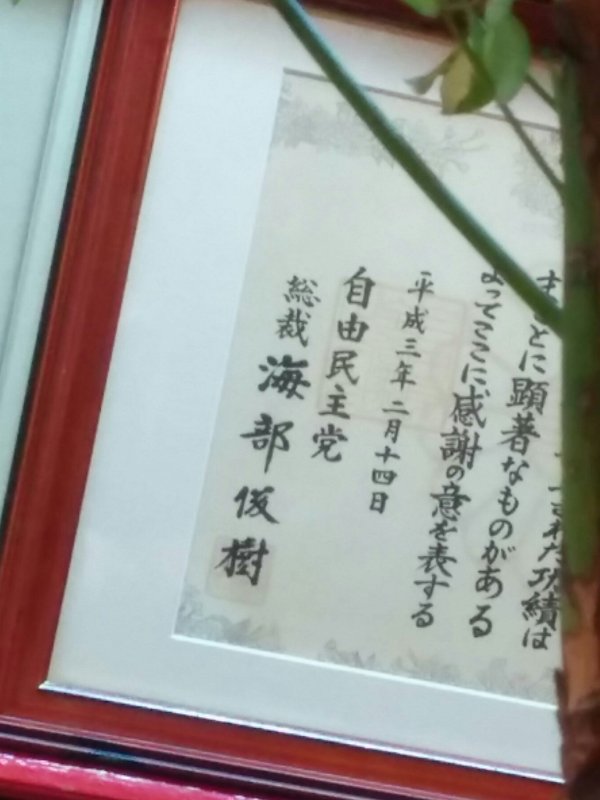 された功績は
まことに顕著なものがある
よってここに感謝の意を表する
平成三年二月十四日
自由民主党
総裁 海部俊樹